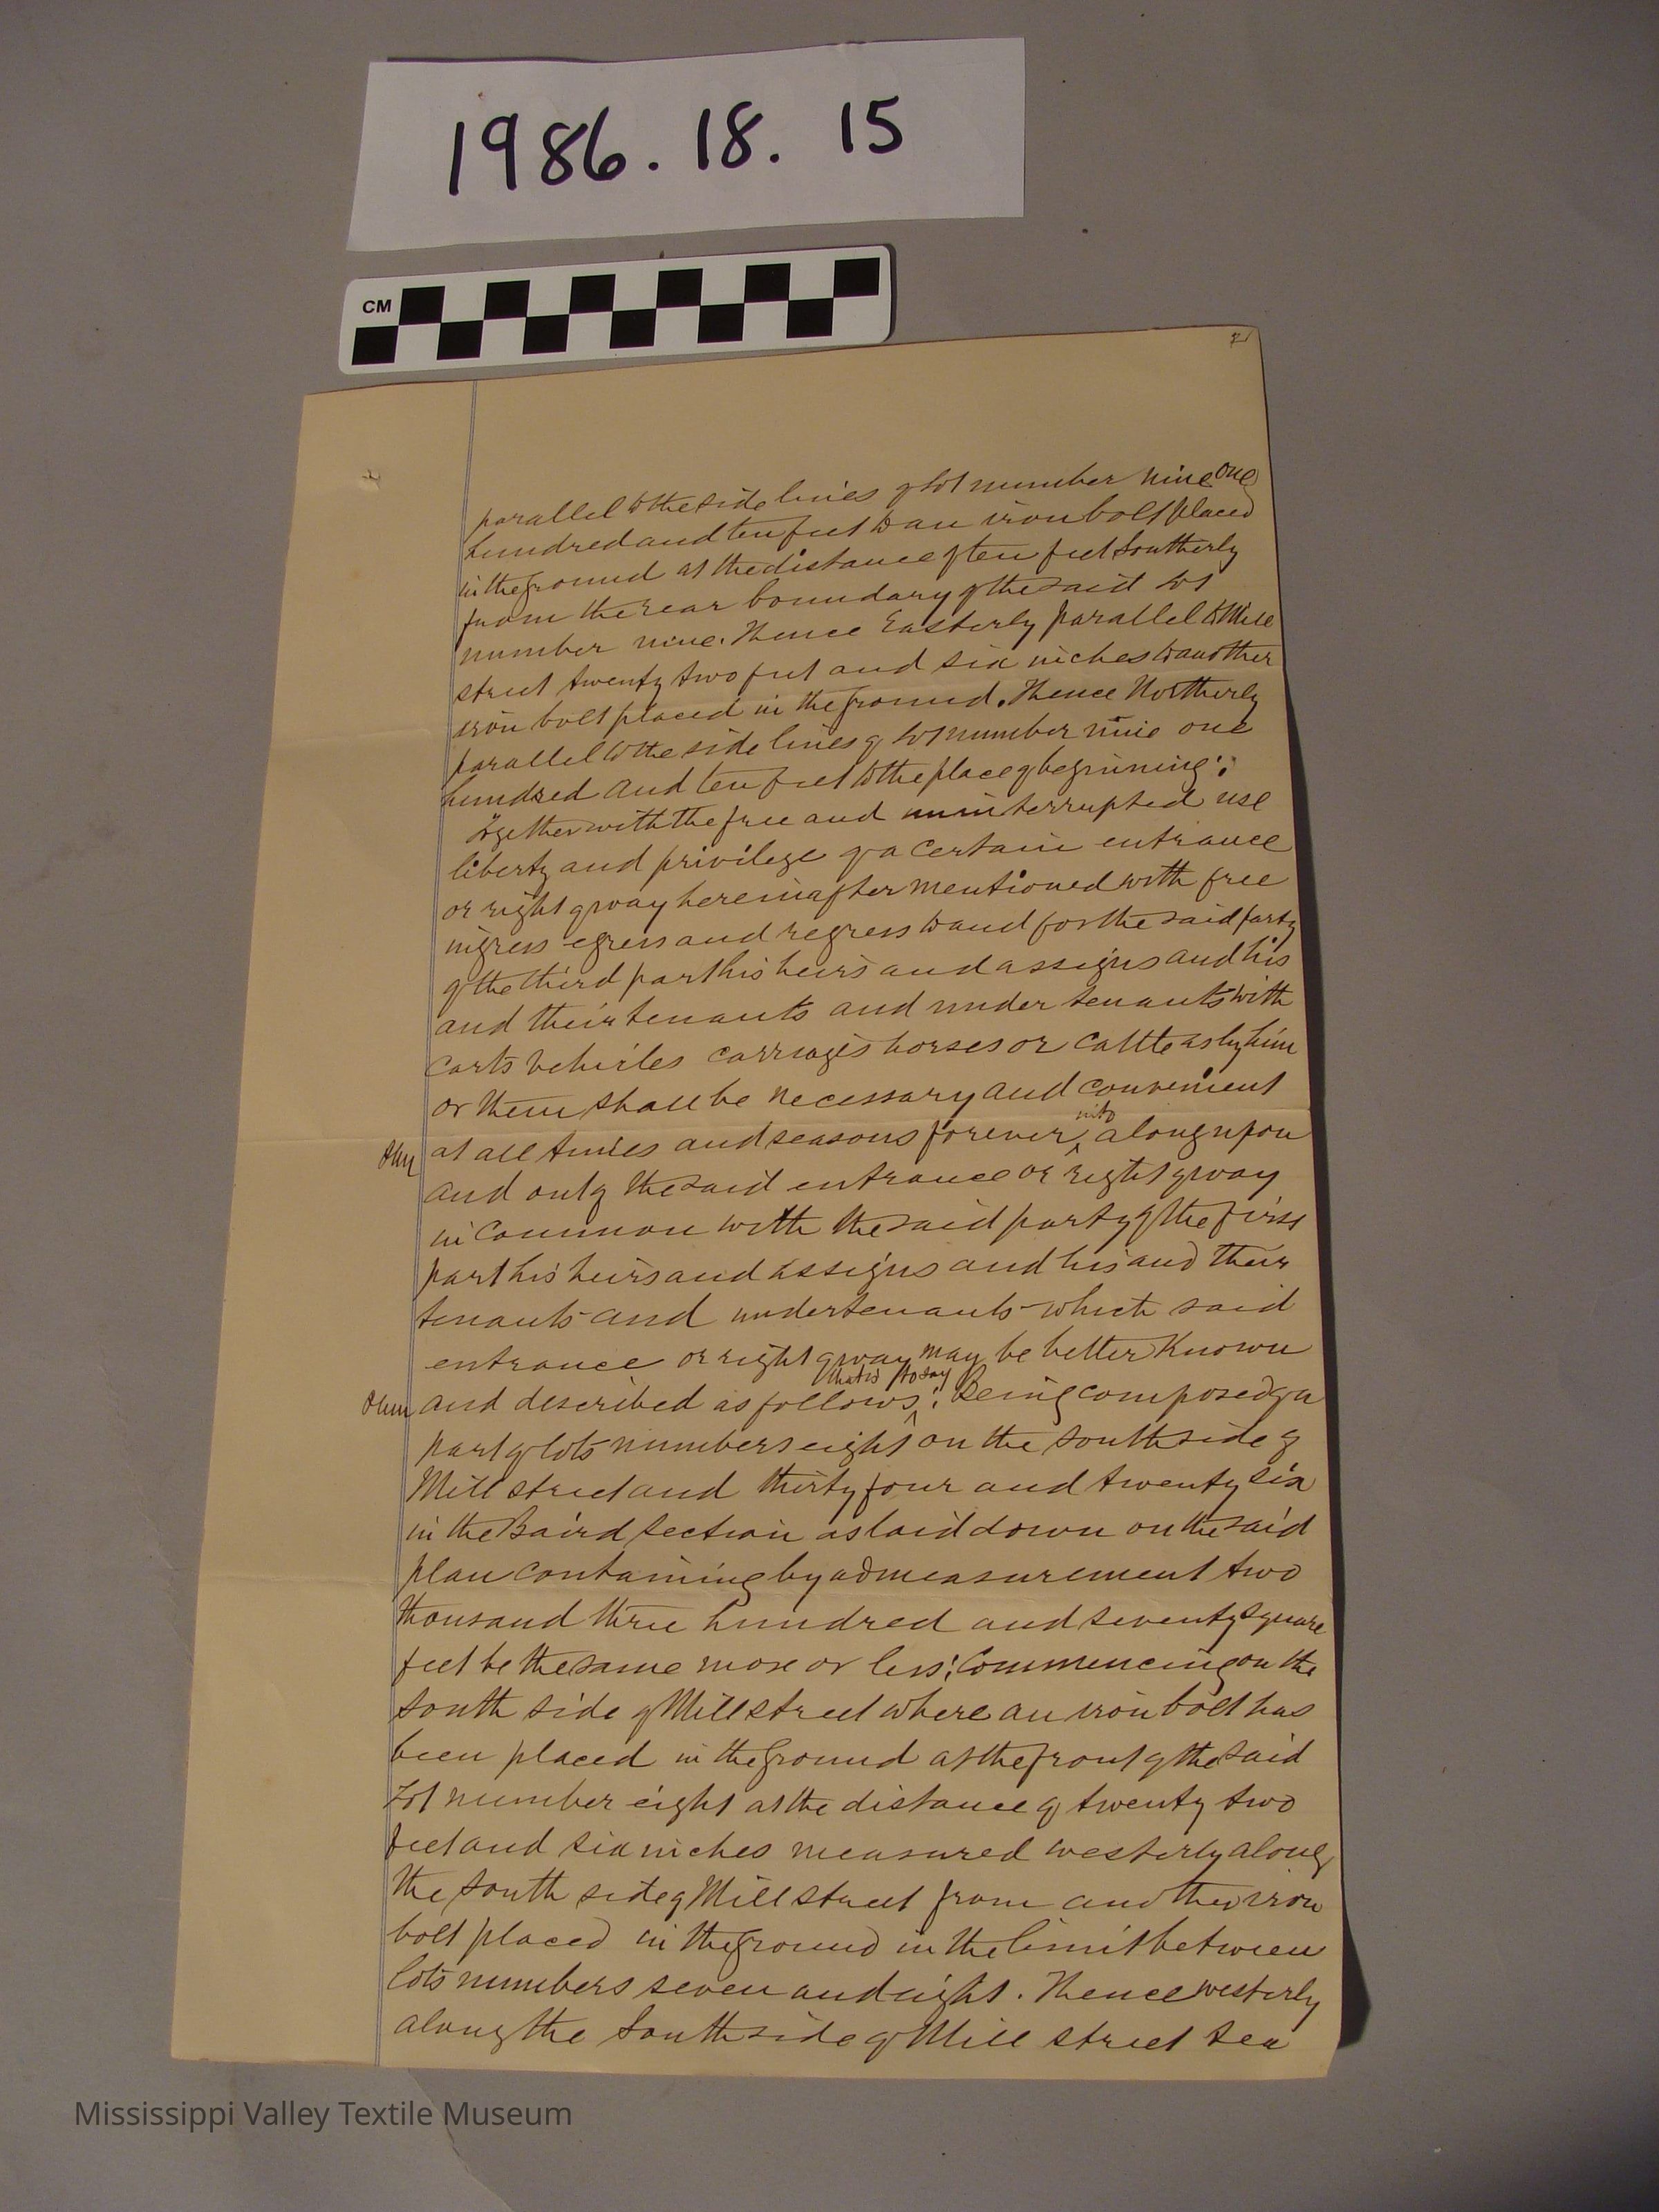 1986.18.15
CM
parallel to the side lines of lot number nine one
hundred and ten feet to an iron bolt placed
in the ground at the distance of ten feet Southerly
from the rear boundary of the said lot
number nine. Thence Easterly parallel to Mill
street twenty two feet and six inches to another
iron bolt placed in the ground. Thence Northerly
parallel to the side lines of lot number nine one
hundred and ten feet to the place of beginning:
Together with the free and uninterrupted use
liberty and privilege of a certain entrance
or right of way hereinafter mentioned with free
ingress egress and regress to and for the said party
of the third part his heirs and assigns and his
and their tenants and under tenants with
carts vehicles carriages horses or cattle as by him
or them shall be necessary and convenient
at all times and seasons forever into along upon
and only the said entrance or right of way
in common with the said party of the first
part his heirs and assigns and his and their
tenants and undertenants which said
entrance or right of way may be better known
and described as follows that is to say: Being composed of a
part of lots numbers eight on the south side of
Mill street and thirty four and twenty six
in the Baird Section as laid down on the said
plan containing by admeasurement two
thousand three hundred and seventy square
feet be the same more or less: Commencing on the
South side of Mill street where an iron bolt has
been placed in the ground at the front of the said
Lot number eight at the distance of twenty two
feet and six inches measured westerly along
the South side of Mill street from another iron
bolt placed in the ground in the limit between
lots numbers seven and eight. Thence westerly
along the South side of Mill street ten
Mississippi Valley Textile Museum